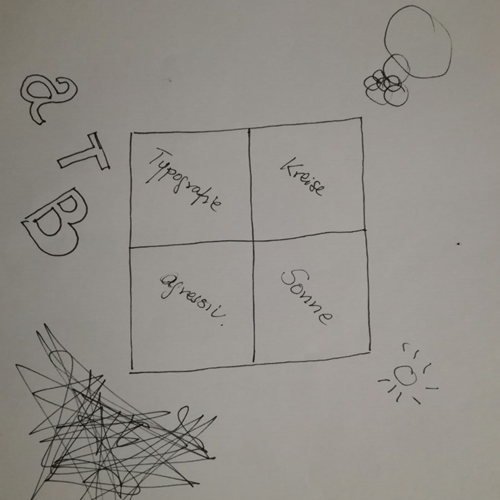 a
T
B
Typografie
Kreise
agressiv.
Sonne